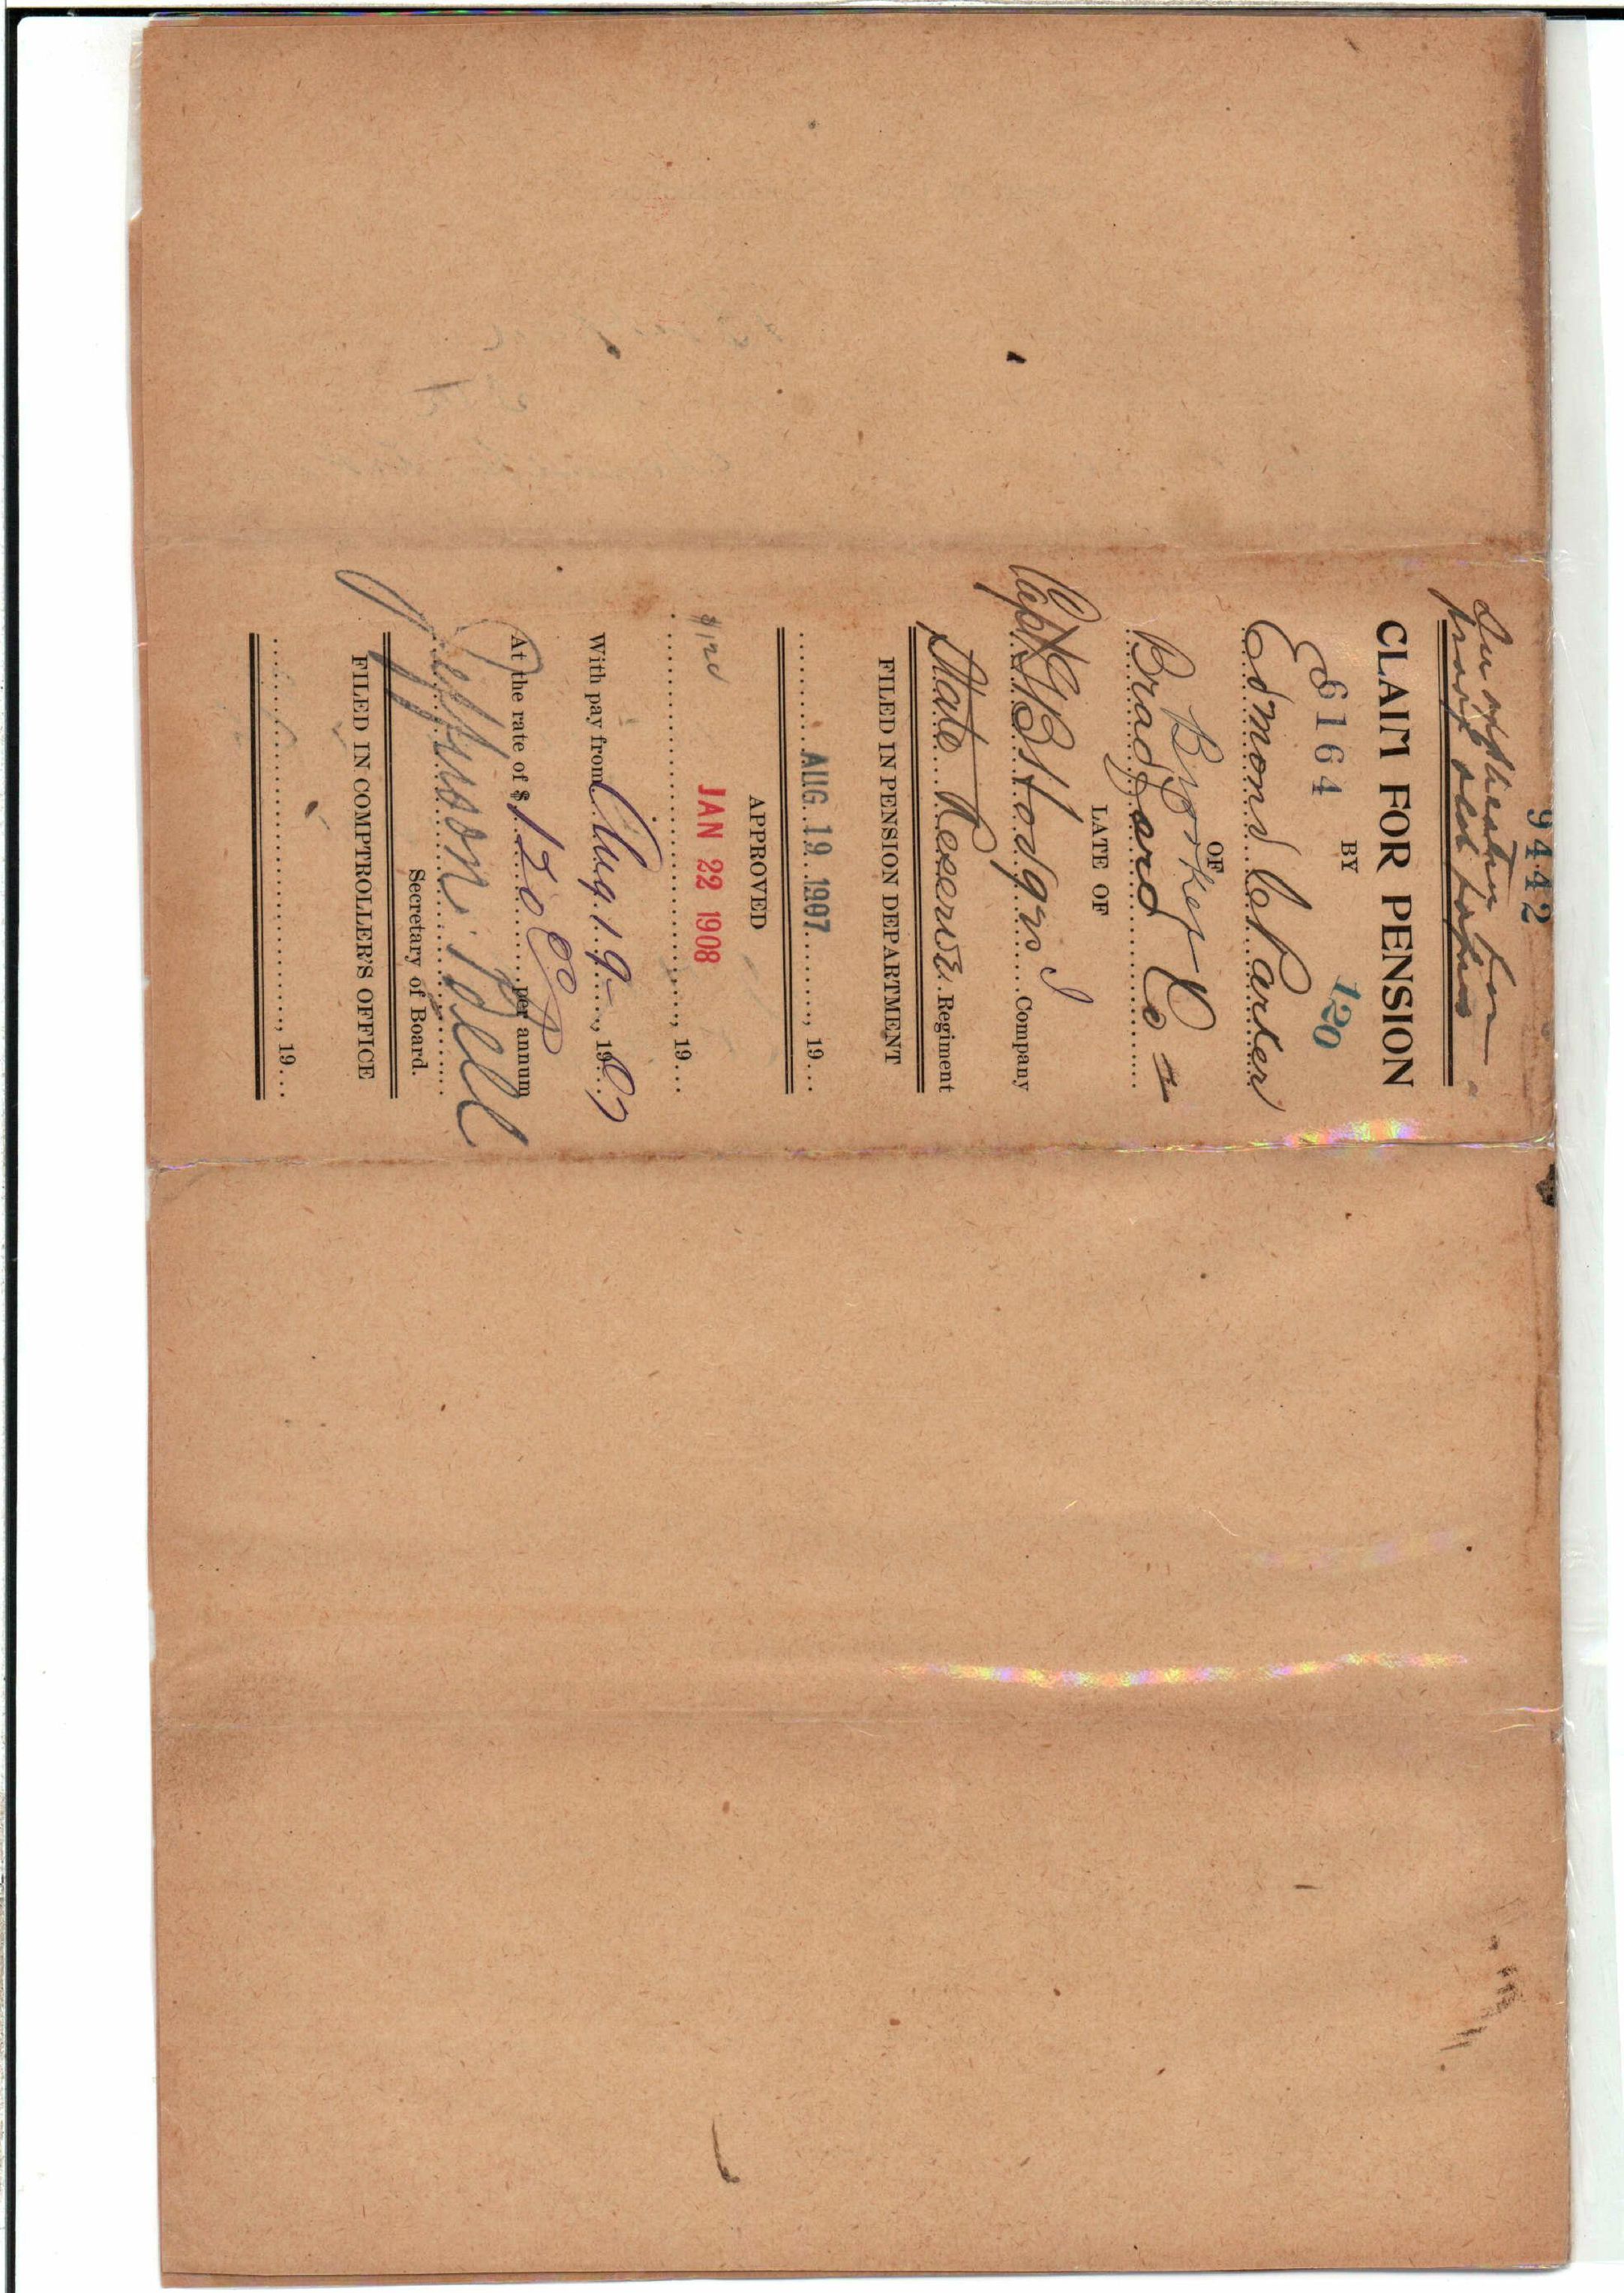 9442
In application for
proof see papers
CLAIM FOR PENSION
BY
6164
120
Edmond C Parker
OF
Brooker
Bradford Co
LATE OF
Capt G B Hodges Company
State Reserve Regiment
FILED IN PENSION DEPARTMENT
AUG. 19 1907, 19...
APPROVED
JAN 22 1908
$120
, 19...
With pay from Aug 19, 1907
At the rate of $ 120 00 per annum
Jefferson Bell
Secretary of Board.
FILED IN COMPTROLLER'S OFFICE
, 19...